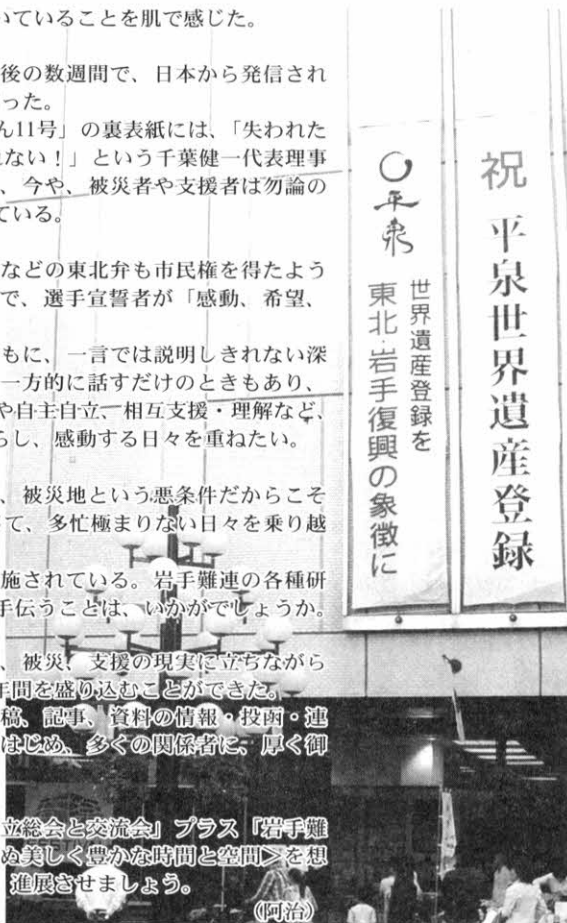 いていることを肌で感じた。
後の数週間で、日本から発信され
った。
ん11号」の裏表紙には、「失われた
れない！」という千葉健一代表理事
、今や、被災者や支援者は勿論の
ている。
などの東北弁も市民権を得たよう
で、選手宣誓者が「感動、希望、
もに、一言では説明しきれない深
一方的に話すだけのときもあり、
や自主自立、相互支援・理解など、
らし、感動する日々を重ねたい。
、被災地という悪条件だからこそ
って、多忙極まりない日々を乗り越
施されている。岩手難連の各種研
手伝うことは、いかがでしょうか。
、被災、支援の現実に立ちながら
年間を盛り込むことができた。
稿、記事、資料の情報・投函・連
はじめ、多くの関係者に、厚く御
立総会と交流会」プラス「岩手難
ぬ美しく豊かな時間と空間＞を想
進展させましょう。
(阿治)
祝 平泉世界遺産登録
平泉
世界遺産登録を
東北・岩手復興の象徴に